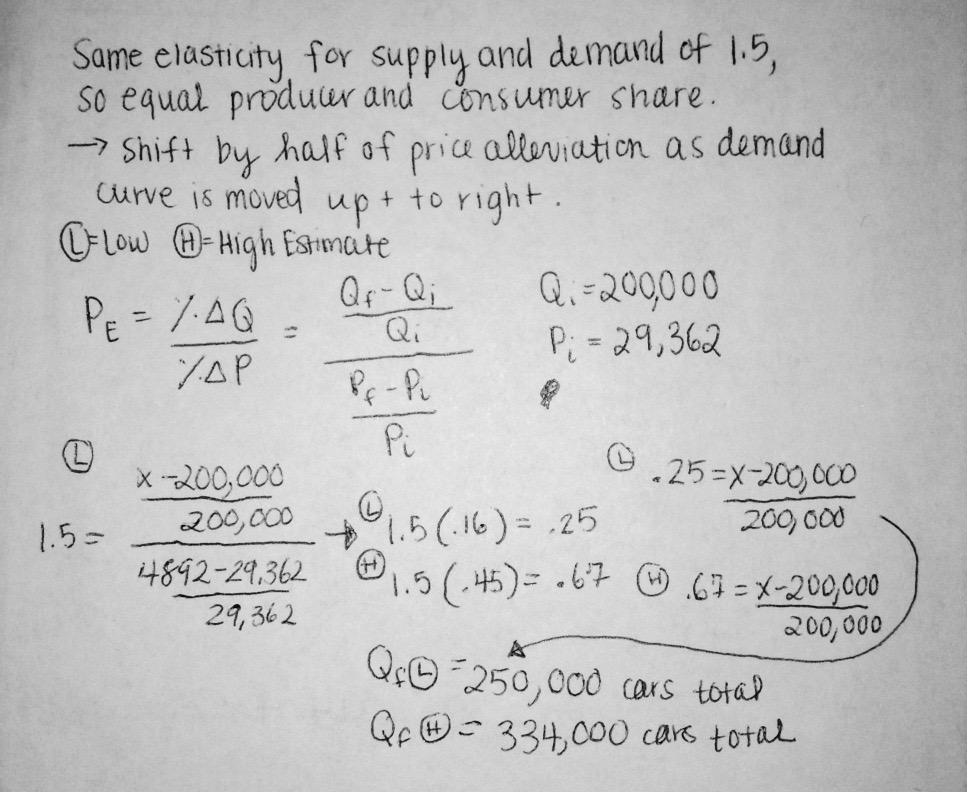 Same elasticity for supply and demand of 1.5,
so equal producer and consumer share.
→ Shift by half of price alleviation as demand
curve is moved up + to right.
Ⓛ=Low Ⓗ=High Estimate
P_E = %ΔQ / %ΔP = ((Qf-Qi)/Qi) / ((Pf-Pi)/Pi)
Qi=200,000
Pi=29,362
Ⓛ
1.5= ((x-200,000)/200,000) / ((4892-29,362)/29,362)
→ Ⓛ 1.5(.16)= .25
Ⓗ 1.5(.45)= .67
Ⓛ .25=x-200,000/200,000
Ⓗ .67=x-200,000/200,000
QfⓁ=250,000 cars total
QfⒽ= 334,000 cars total